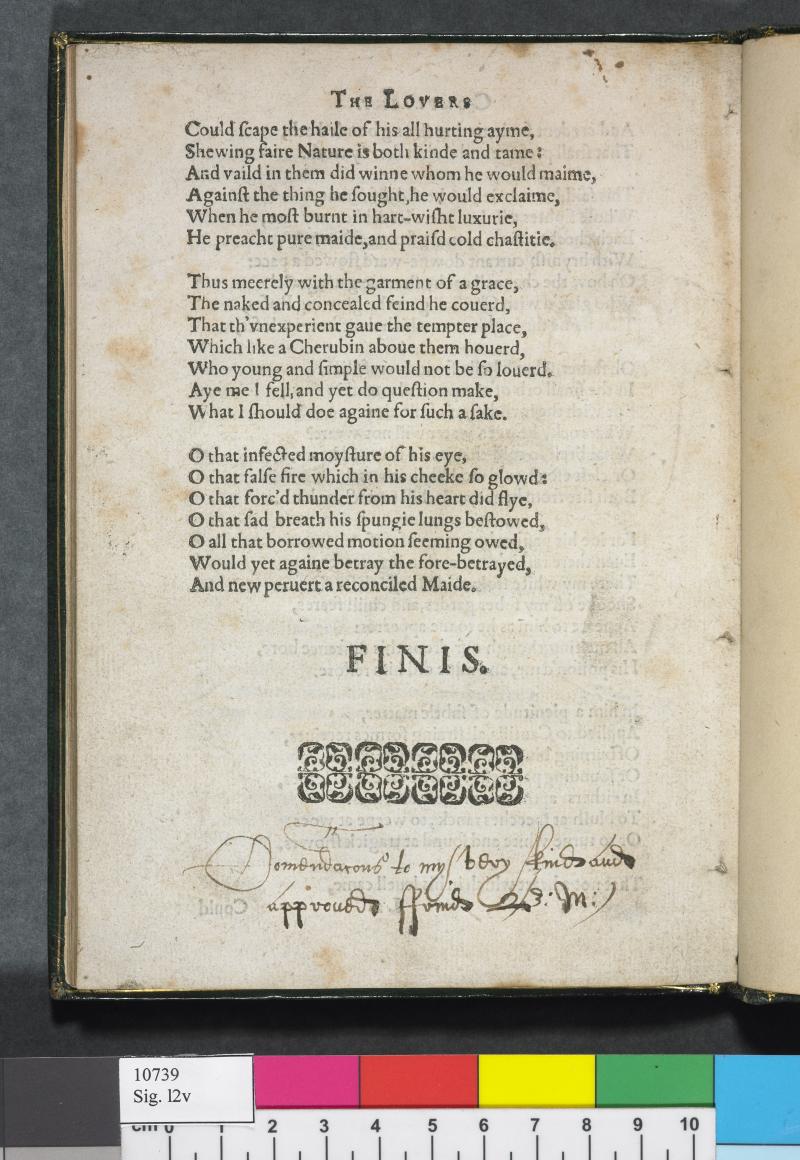 THE LOVERS
Could ſcape the haile of his all hurting ayme,
Shewing faire Nature is both kinde and tame:
And vaild in them did winne whom he would maime,
Againſt the thing he ſought,he would exclaime,
When he moſt burnt in hart-wiſht luxurie,
He preacht pure maide,and praiſd cold chaſtitie.
Thus meerely with the garment of a grace,
The naked and concealed feind he couerd,
That th'vnexperient gaue the tempter place,
Which like a Cherubin aboue them houerd,
Who young and ſimple would not be ſo louerd.
Aye me I fell,and yet do queſtion make,
What I ſhould doe againe for ſuch a ſake.
O that infected moyſture of his eye,
O that falſe fire which in his cheeke ſo glowd:
O that forc'd thunder from his heart did flye,
O that ſad breath his ſpungie lungs beſtowed,
O all that borrowed motion ſeeming owed,
Would yet againe betray the fore-betrayed,
And new peruert a reconciled Maide.
FINIS.
to my very kind and
approued ffrind B: M:
10739
Sig. l2v
cm 0 1 2 3 4 5 6 7 8 9 10